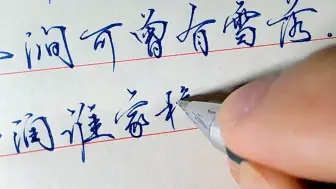 涧可曾有雪落.
润谁家